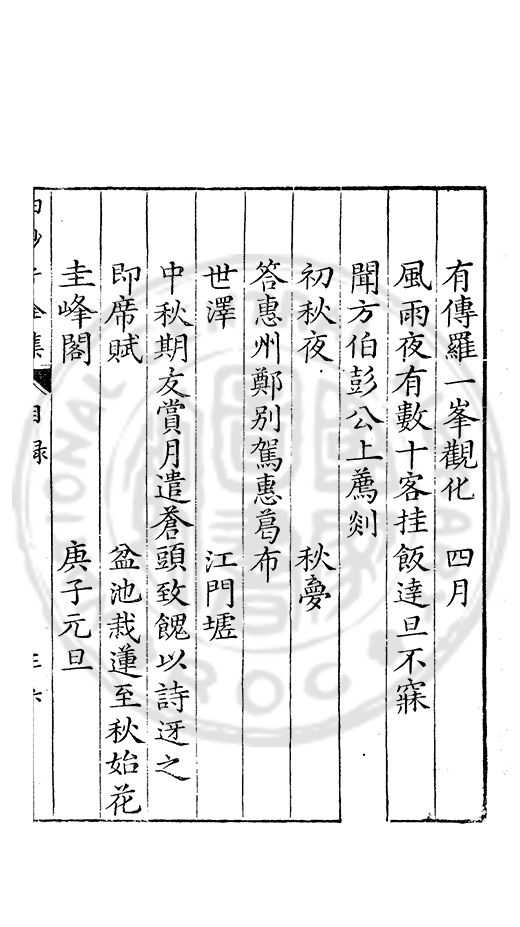 有傳羅一峯觀化　四月
風雨夜有數十客挂飯達旦不寐
聞方伯彭公上薦剡
初秋夜　秋夢
答惠州鄭別駕惠葛布
世澤　江門墟
中秋期友賞月遣蒼頭致餽以詩迓之
即席賦　盆池栽蓮至秋始花
圭峰閣　庚子元旦
子全集　目録